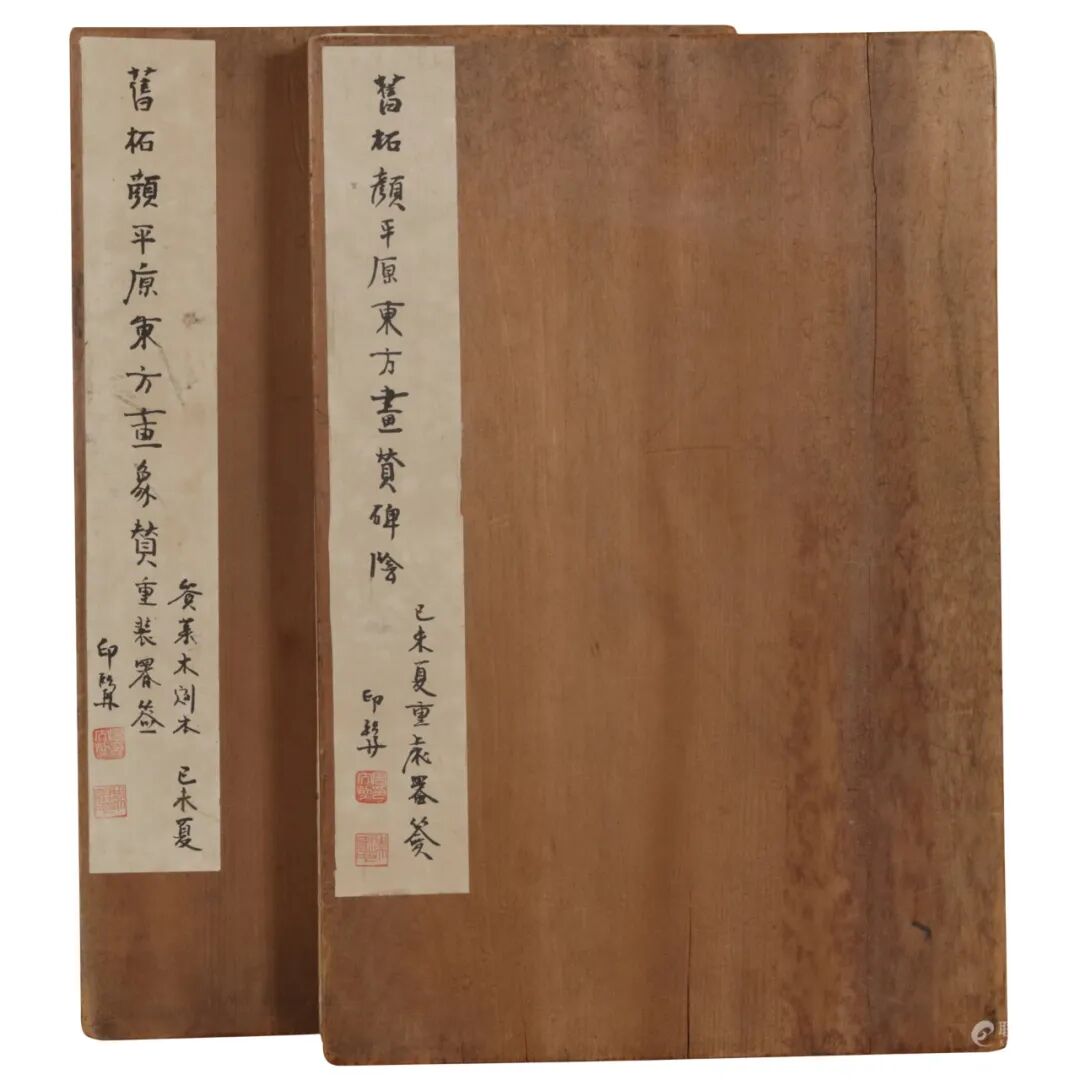 舊柘顏平原東方畫象贊重裝署簽
己未夏
印
舊柘顏平原東方畫贊碑陰
己未夏重裝署簽
印